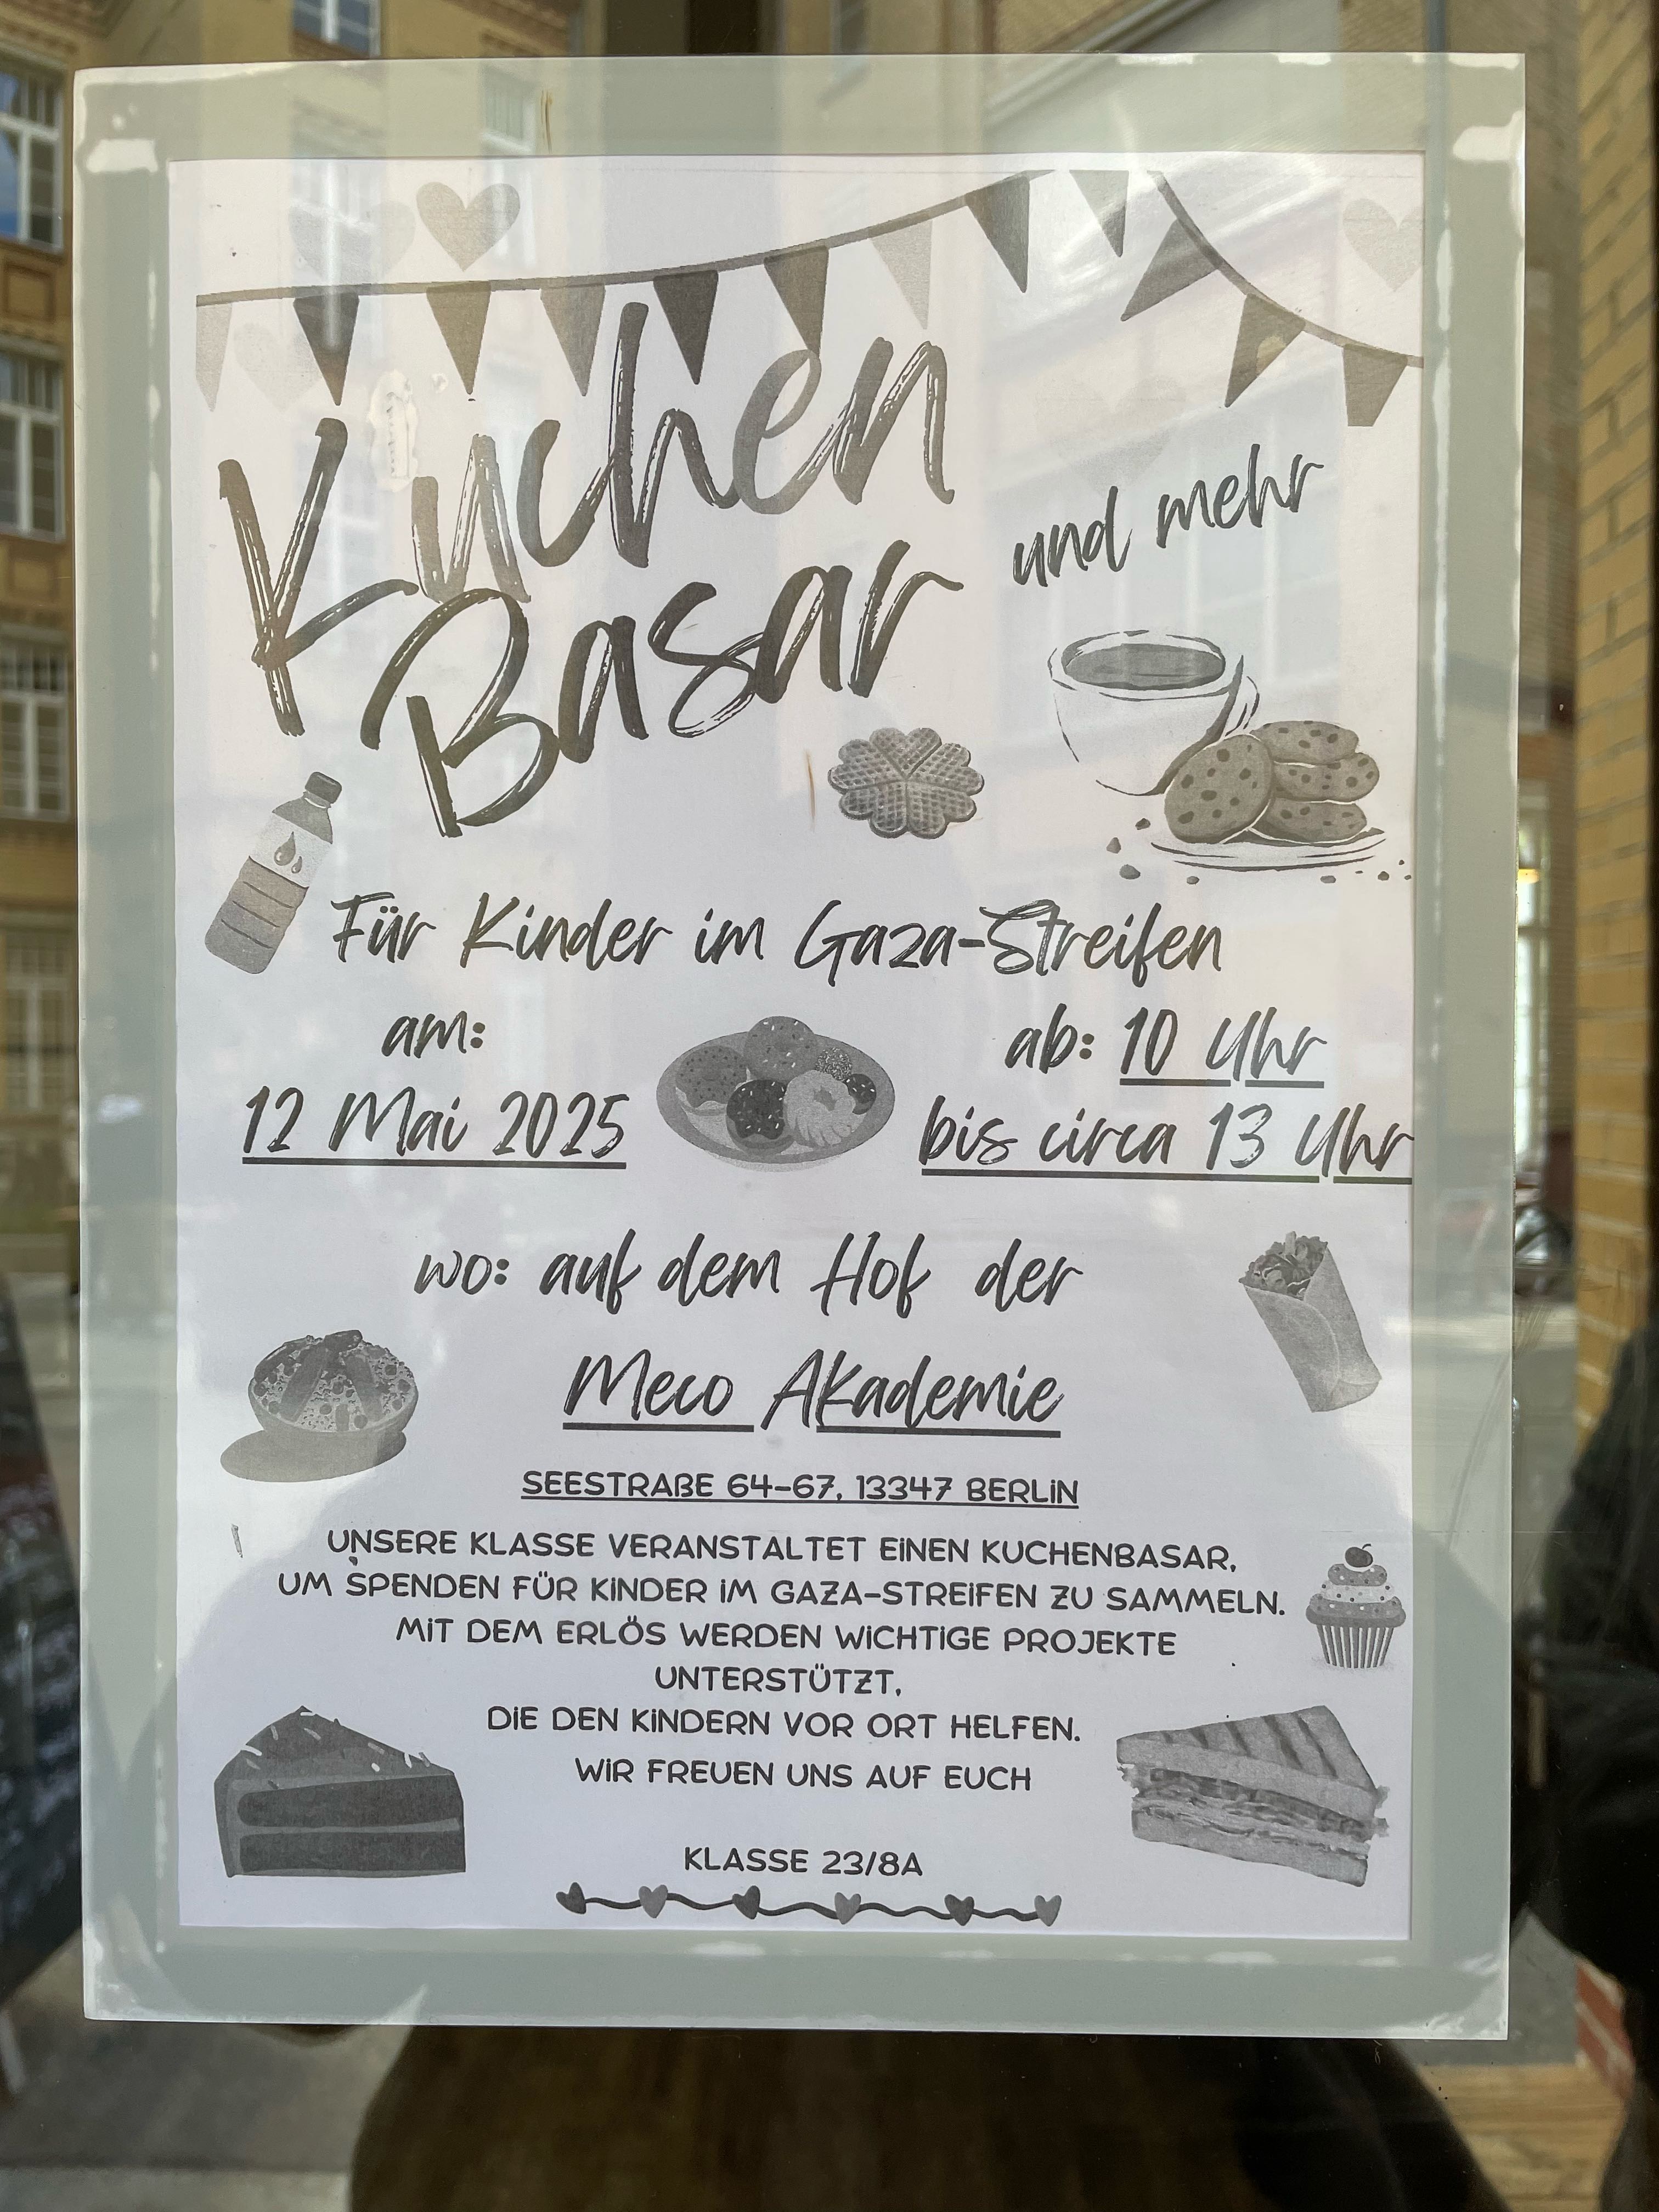 Kuchen
Basar
und mehr
Für Kinder im Gaza-Streifen
am:
12 Mai 2025
ab: 10 Uhr
bis circa 13 Uhr
wo: auf dem Hof der
Meco Akademie
SEESTRAßE 64-67, 13347 BERLIN
UNSERE KLASSE VERANSTALTET EINEN KUCHENBASAR,
UM SPENDEN FÜR KINDER IM GAZA-STREIFEN ZU SAMMELN.
MIT DEM ERLÖS WERDEN WICHTIGE PROJEKTE
UNTERSTÜTZT,
DIE DEN KINDERN VOR ORT HELFEN.
WIR FREUEN UNS AUF EUCH
KLASSE 23/8A